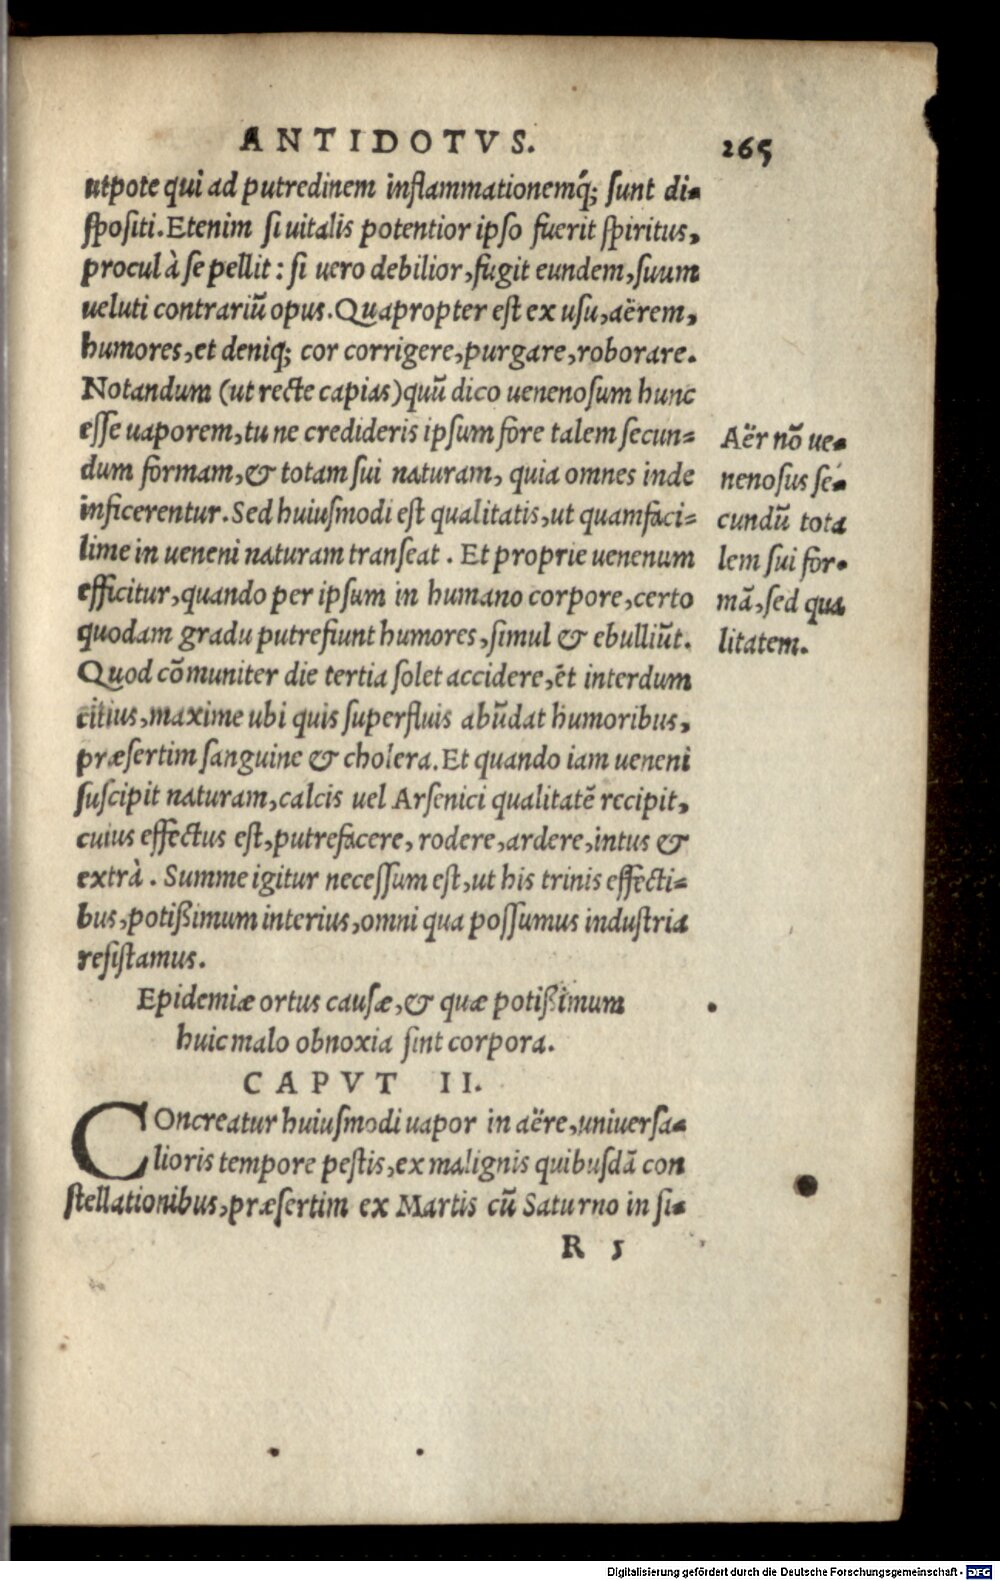 ANTIDOTVS. 265
utpote qui ad putredinem inflammationemq́; sunt di-
spositi. Etenim si uitalis potentior ipso fuerit spiritus,
procul à se pellit : si uero debilior, fugit eundem, suum
ueluti contrariũ opus. Quapropter est ex usu, aërem,
humores, et deniq; cor corrigere, purgare, roborare.
Notandum (ut recte capias) quũ dico uenenosum hunc
esse uaporem, tu ne credideris ipsum fore talem secun-
dum formam, & totam sui naturam, quia omnes inde
inficerentur. Sed huiusmodi est qualitatis, ut quamfaci-
lime in ueneni naturam transeat . Et proprie uenenum
efficitur, quando per ipsum in humano corpore, certo
quodam gradu putrefiunt humores, simul & ebulliũt.
Quod cõmuniter die tertia solet accidere, ẽt interdum
citius, maxime ubi quis superfluis abũdat humoribus,
præsertim sanguine & cholera. Et quando iam ueneni
suscipit naturam, calcis uel Arsenici qualitatẽ recipit,
cuius effectus est, putrefacere, rodere, ardere, intus &
extrà . Summe igitur necessum est, ut his trinis effecti-
bus, potißimum interius, omni qua possumus industria
resistamus.
Aër nõ ue-
nenosus se-
cundũ tota
lem sui for-
mã, sed qua
litatem.
Epidemiæ ortus causæ, & quæ potißimum
huic malo obnoxia sint corpora.
CAPVT II.
COncreatur huiusmodi uapor in aëre, uniuersa-
lioris tempore pestis, ex malignis quibusdã con
stellationibus, præsertim ex Martis cũ Saturno in si-
R 5
Digitalisierung gefördert durch die Deutsche Forschungsgemeinschaft - DFG